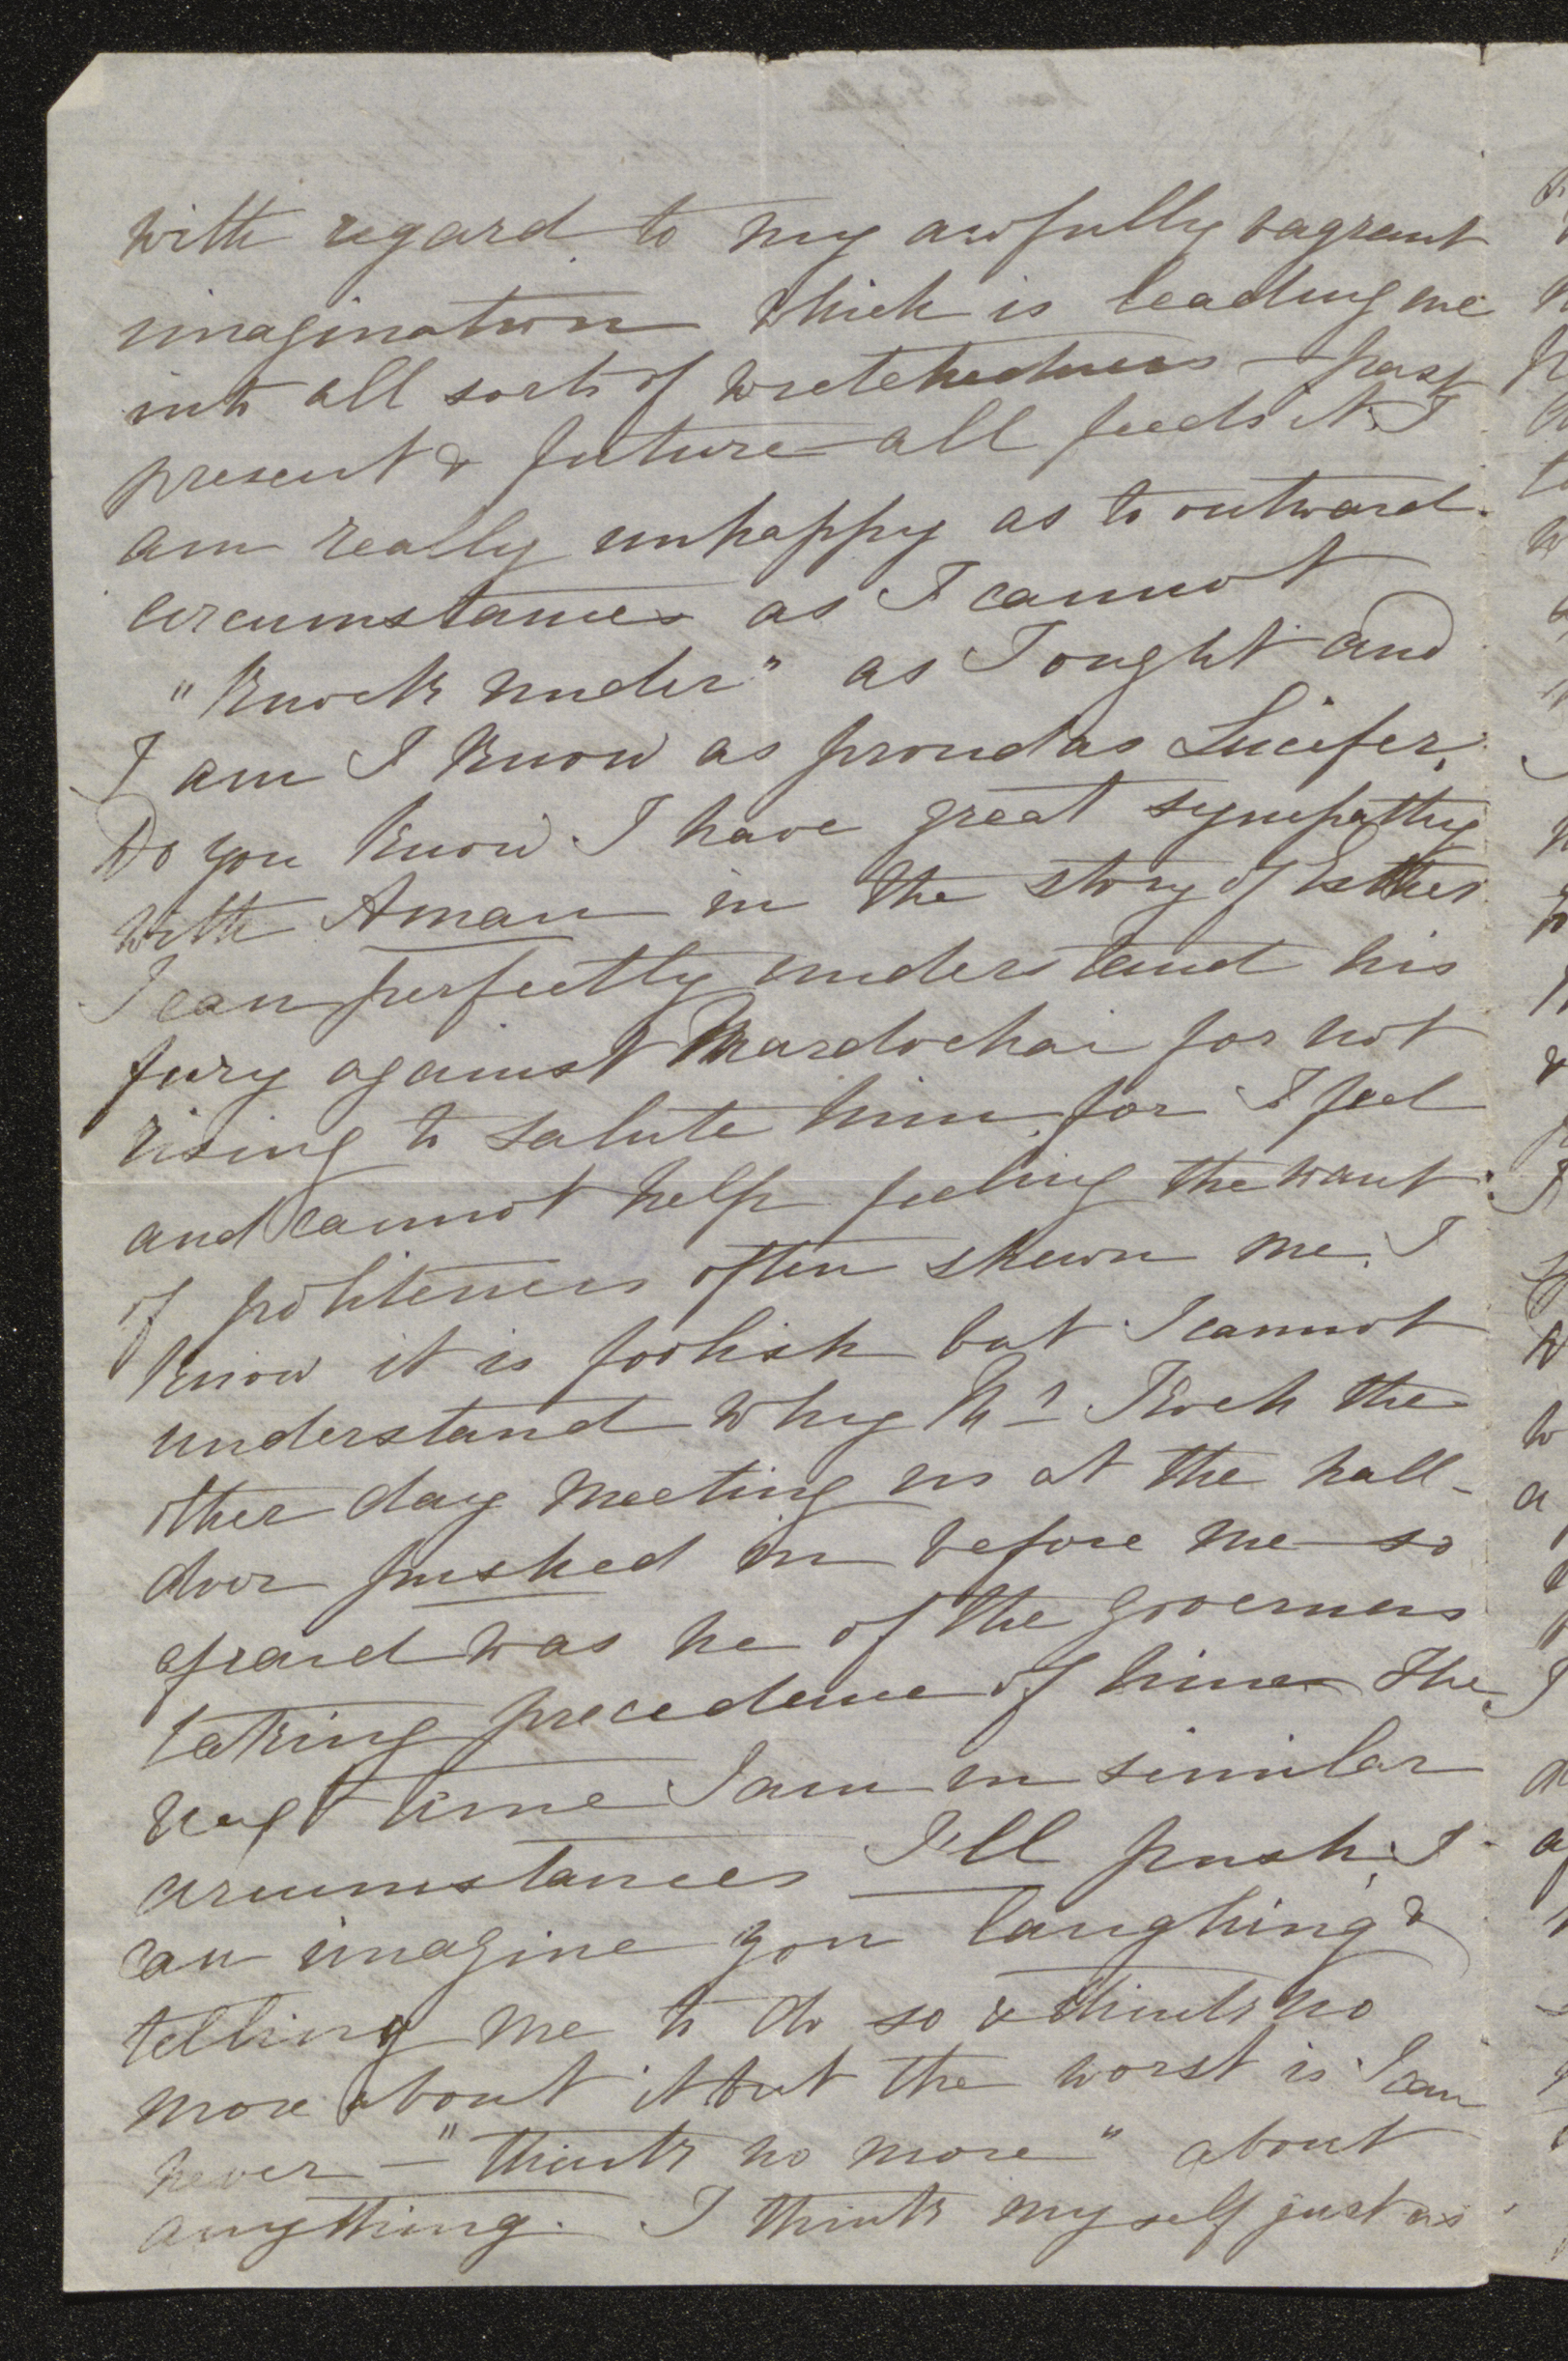 with regard to my awfully vagrant
imagination which is leading me
into all sorts of wretchedness – past
present & future – all feeds it. I
am really unhappy as to outward
circumstances as I cannot
"Knock under" as I ought and
I am I know as proud as Lucifer.
Do you know I have great sympathy
with Aman in the story of Esther
I can perfectly understand his
fury against Mardochai for not
rising to salute him, for I feel
and cannot help feeling the want
of politeness often shewn me. I
know it is foolish but I cannot
understand why Mr Koch the
other day meeting us at the hall-
door pushed in before me so
afraid was he of the governess
taking precedence of him – The
next time I am in similar
circumstances I'll push. I
can imagine you laughing &
telling me to do so & think no
more about it but the worst is I can
never – "think no more" about
anything. I think myself just as